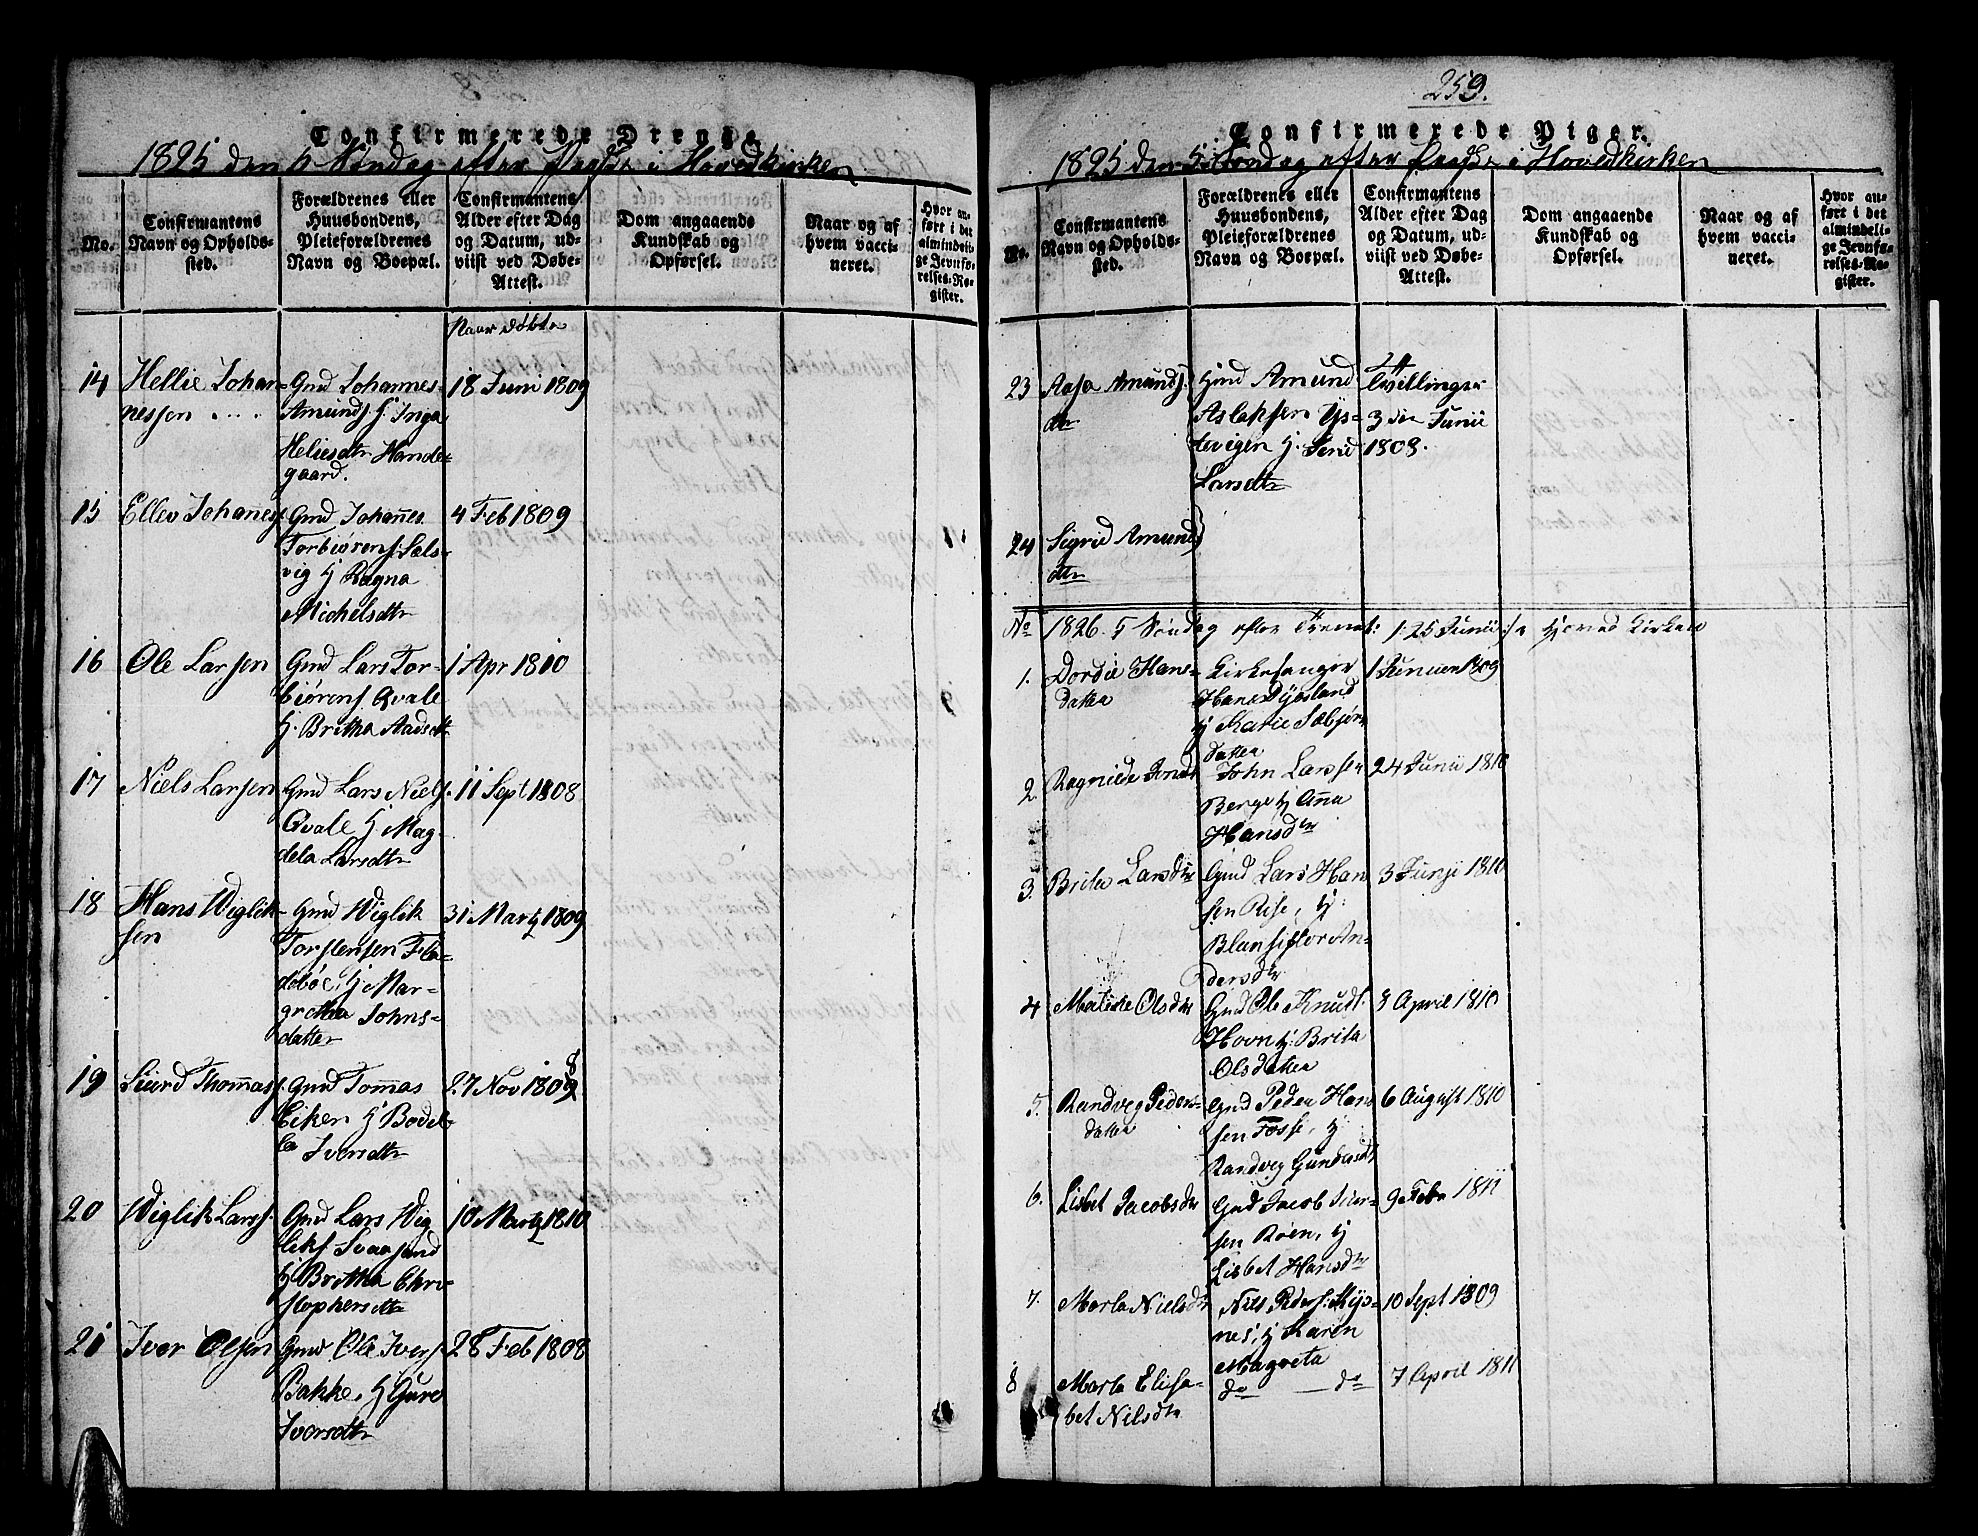 Confirmerede Drenge
1825 den 5 Søndag efter Paaske i Hovedkirken
No.
Confirmantens
Navn og Opholds-
sted.
Forældrenes eller
Huusbondens,
Pleieforældrenes
Navn og Boepæl.
Confirmantens
Alder efter Dag
og Datum, ud-
viist ved Døbe-
Attest.
Dom angaaende
Kundskab og
Opførsel.
Naar og af
hvem vacci-
neret.
Hvor an-
ført i det
almindeli-
ge Jevnfø-
relses-Re-
gister.
Naar døbte
14 Hellie Johan-
nessen
Gmd Johannes
Amunds h. Inga
Heliesdtr Hande-
gaard.
18 Juni 1809
15 Ellev Johannes
Gmd Johannes
Torbiørens. Sæls-
vig hj Ragna
Michelsdtr
4 Feb 1809
16 Ole Larsen
Gmd Lars Tor-
biørens. Qvale
hj. Britha Aadsdtr
1 Apr 1810
17 Niels Larsen
Gmd Lars Niels.
Qvale hj Mag-
dela Larsdtr
11 Sept 1808
18 Hans Wiglik-
sen
Gmd Wiglik
Torstensen Fla-
deböe, hj Mar-
gretha Johns-
datter
31 Martz 1809
19 Siurd Thommas.
Gmd Tommas
Eiken hj Bodil-
la Iversdtr
27 Nov 1809
8
20 Wiglik Larss.
Gmd Lars Wig
liks Svaasand
hj Britha Chri-
stophersdtr
10 Martz 1810
21 Iver Olsen
Gmd Ole Ivers.
Bakke, hj Guro
Iversdtr
28 Feb 1808
259.
Confirmerede Piger.
1825 den 5 Søndag efter Paaske i Hovedkirken
No.
Confirmantens
Navn og Opholds-
sted.
Forældrenes eller
Huusbondens,
Pleieforældrenes
Navn og Boepæl.
Confirmantens
Alder efter Dag
og Datum, ud-
viist ved Døbe-
Attest.
Dom angaaende
Kundskab og
Opførsel.
Naar og af
hvem vacci-
neret.
Hvor an-
ført i det
almindeli-
ge Jevnfø-
relses-Re-
gister.
23 Aasa Amunds.
dtr
Gmd Amund
Aslaksen Yts-
tevigen hj. Serid
Larsdtr
Tvillinger
3 die Junii
1808.
24 Sigrid Amunds
dtr
No 1826. 5 Søndag efter Trenit: 1: 25 Junii :/ i Hoved Kirken
1. Dordie Hans-
datter
Kirkesanger
Hans Dysland
hj Marie Sæbjörn
datter
1 Junuer 1809
2. Ragnilde Jonsdtr
John Larssen
Berge hj Anna
Hansdtr
24 Junii 1810
3. Brita Larsdtr
Gmd Lars Han
sen Rise, hj:
Blansiflor An-
dersdtr
3 Junji 1810
4 Malene Olsdtr
Gmd Ole Knuds.
Hovn hj: Brita
Olsdatter
3 April 1810
5. Randveg Peders-
datter
Gmd Peder Han
sen Fosse, hj
Randveg Gunersdtr
6 August 1810
6. Lisbet Jacobsdtr
Gmd Jacob Iver-
sen Röen, hj
Lisbet Hansdtr
9 Febr 1811
7. Marta Nielsdtr
Nils Peders: Mys-
nes, hj Karen
Magreta
10 Sept 1809
8 Marta Elisa-
bet Nilsdtr
do — do
7 April 1811